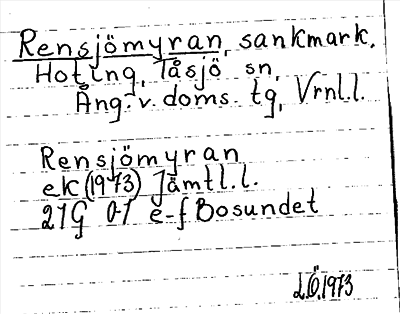 Rensjömyran, sankmark,
Hoting, Tåsjö sn,
Ång. v. doms. tg, Vrnl.l.
Rensjömyran
ek (1973) Jämtl.l.
21G 0-1 e-f Bosundet
L.Ö. 1973